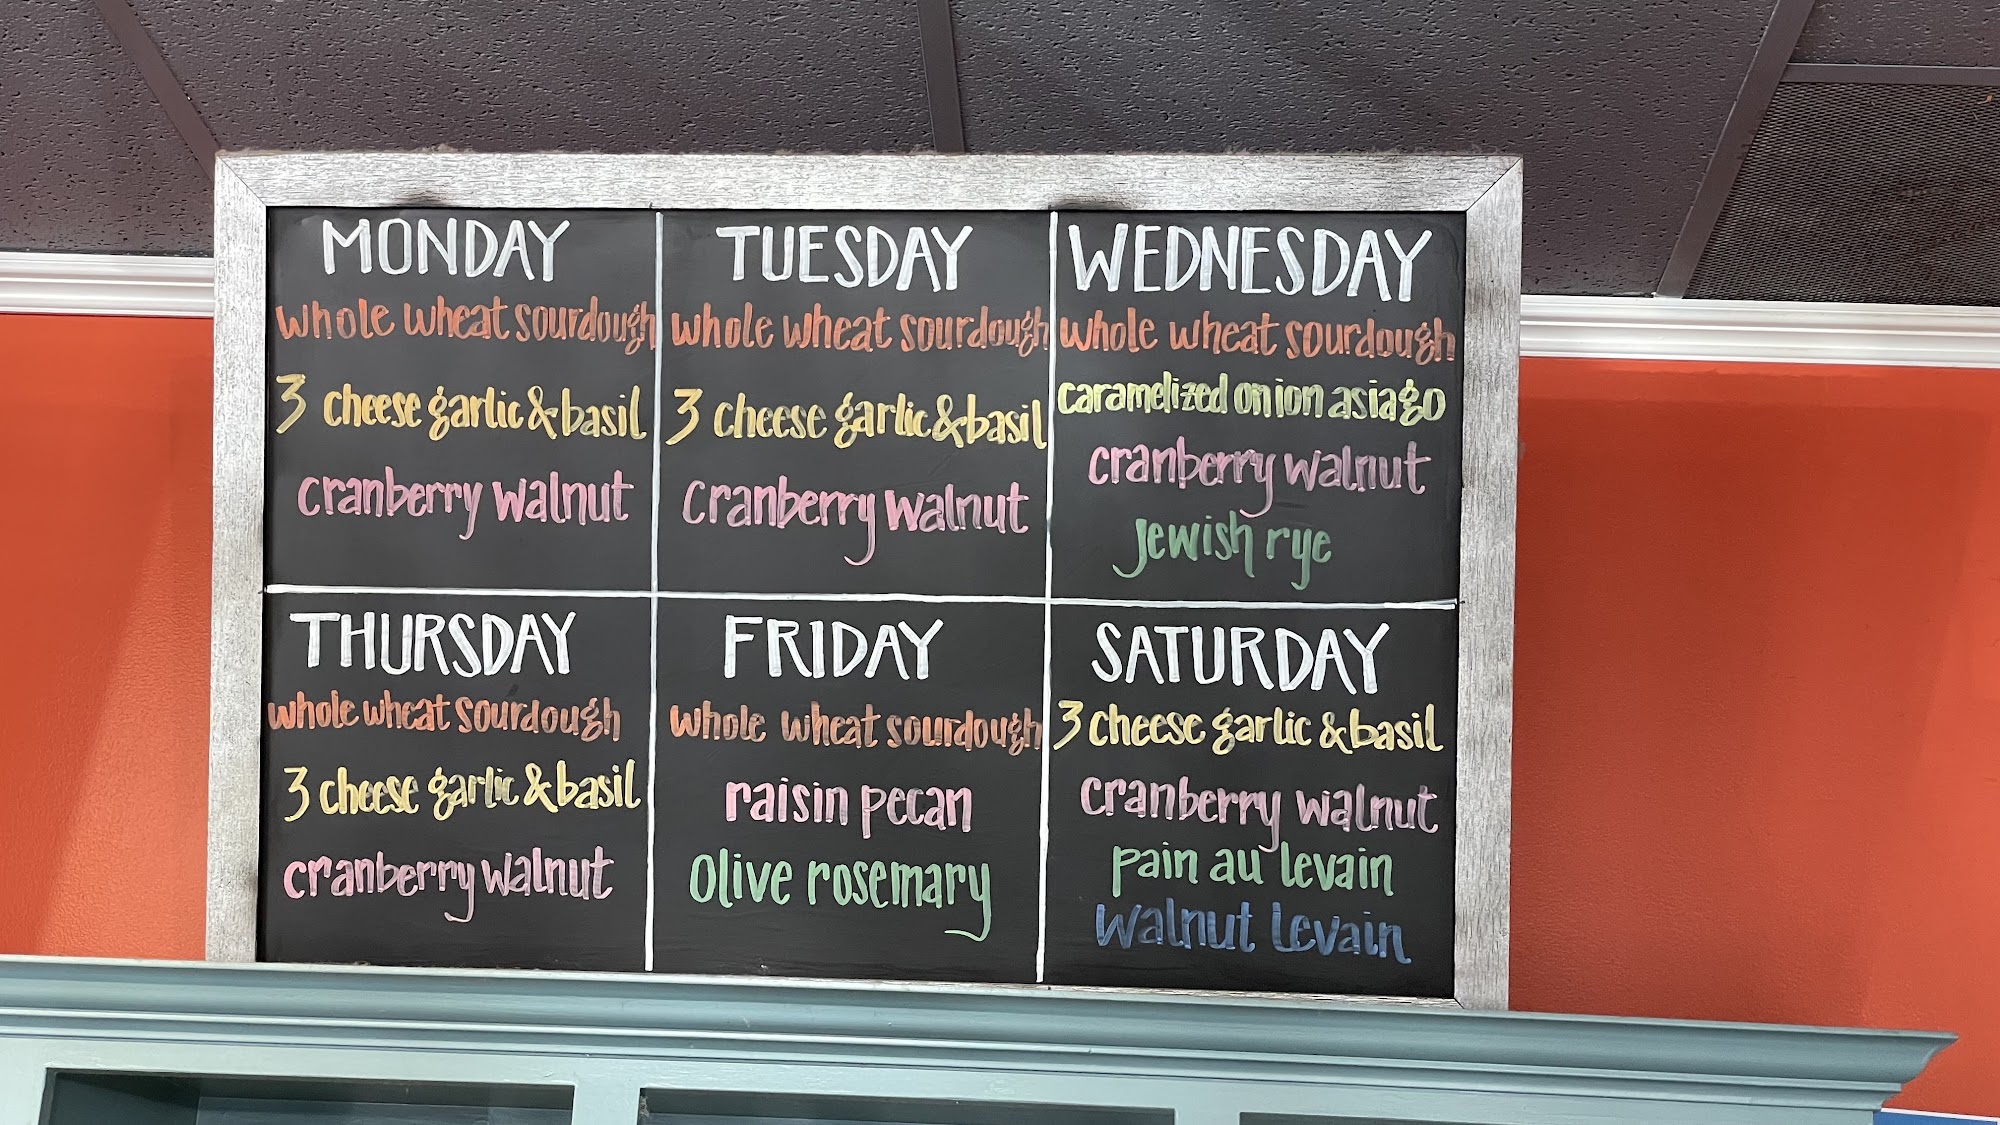 MONDAY
whole wheat sourdough
3 cheese garlic & basil
cranberry walnut
TUESDAY
whole wheat sourdough
3 cheese garlic & basil
cranberry walnut
WEDNESDAY
whole wheat sourdough
caramelized onion asiago
cranberry walnut
jewish rye
THURSDAY
whole wheat sourdough
3 cheese garlic & basil
cranberry walnut
FRIDAY
whole wheat sourdough
raisin pecan
olive rosemary
SATURDAY
3 cheese garlic & basil
cranberry walnut
pain au levain
walnut levain